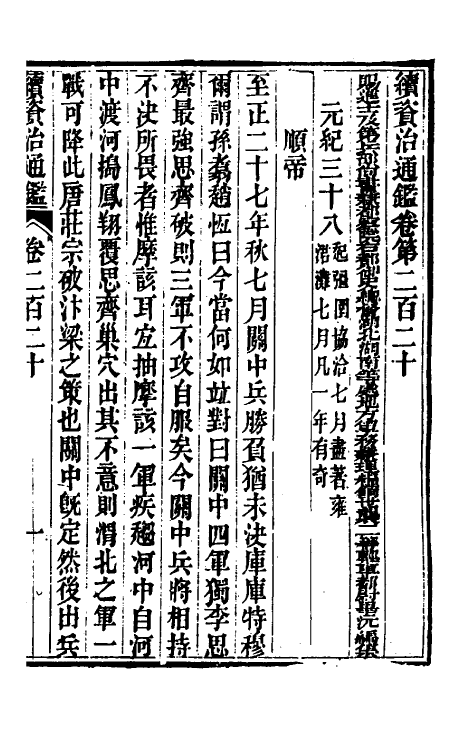 續資治通鑑卷第二百二十
元紀三十八起强圉協洽七月盡著雍涒灘七月凡一年有奇
順帝
至正二十七年秋七月關中兵勝負猶未決庫庫特穆
爾謂孫翥趙恆曰今當何如竝對曰關中四軍獨李思
齊最強思齊破則三軍不攻自服矣今關中兵將相持
不決所畏者惟摩該耳宜抽摩該一軍疾趨河中自河
中渡河搗鳳翔覆思齊巢穴出其不意則渭北之軍一
戰可降此唐莊宗破汴梁之策也關中旣定然後出兵
續資治通鑑 卷二百二十 一